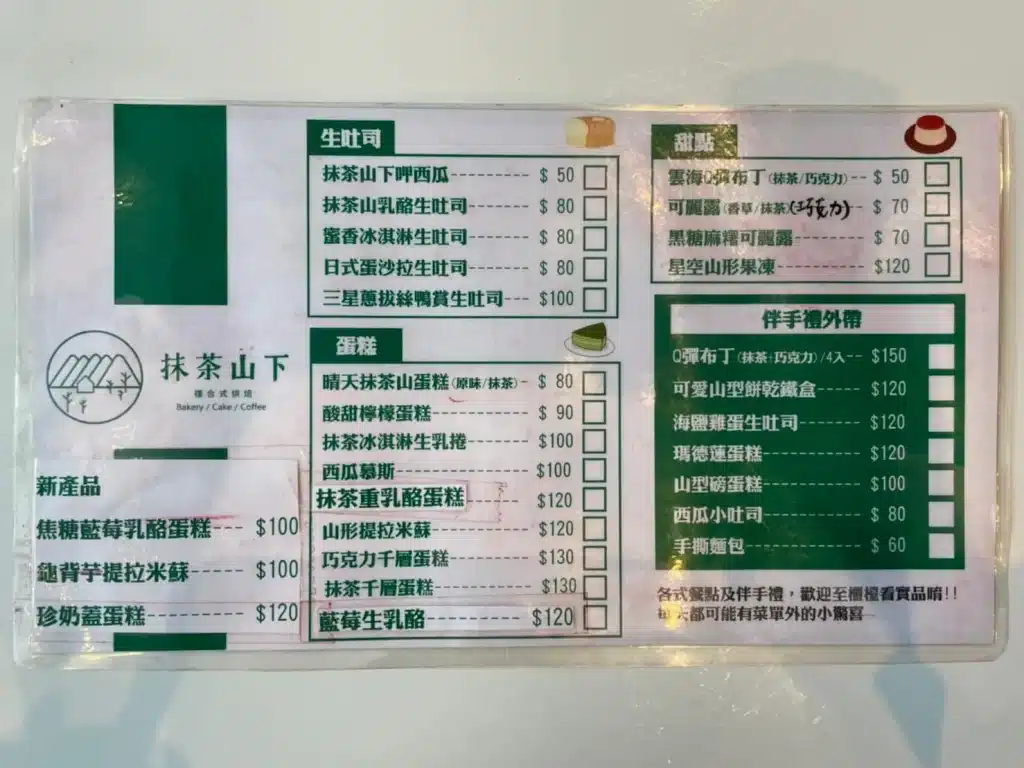 抹茶山下
複合式烘焙
Bakery / Cake / Coffee
新產品
焦糖藍莓乳酪蛋糕---- $100
龜背芋提拉米蘇------ $100
珍奶蓋蛋糕---------- $120
生吐司
抹茶山下呷西瓜---------- $ 50
抹茶山乳酪生吐司-------- $ 80
蜜香冰淇淋生吐司-------- $ 80
日式蛋沙拉生吐司-------- $ 80
三星蔥拔絲鴨賞生吐司--- $100
蛋糕
晴天抹茶山蛋糕(原味/抹茶)- $ 80
酸甜檸檬蛋糕------------ $ 90
抹茶冰淇淋生乳捲-------- $100
西瓜慕斯---------------- $100
抹茶重乳酪蛋糕------ $120
山形提拉米蘇------------ $120
巧克力千層蛋糕---------- $130
抹茶千層蛋糕------------ $130
藍莓生乳酪------------ $120
甜點
雲海Q彈布丁(抹茶/巧克力)-- $ 50
可麗露(香草/抹茶)(巧克力)-- $ 70
黑糖麻糬可麗露---------- $ 70
星空山形果凍------------ $120
伴手禮外帶
Q彈布丁(抹茶·巧克力)/4入-- $150
可愛山型餅乾鐵盒-------- $120
海鹽雞蛋生吐司---------- $120
瑪德蓮蛋糕-------------- $120
山型磅蛋糕-------------- $100
西瓜小吐司-------------- $ 80
手撕麵包---------------- $ 60
各式餐點及伴手禮，歡迎至櫃檯看實品唷!!
都可能有菜單外的小驚喜